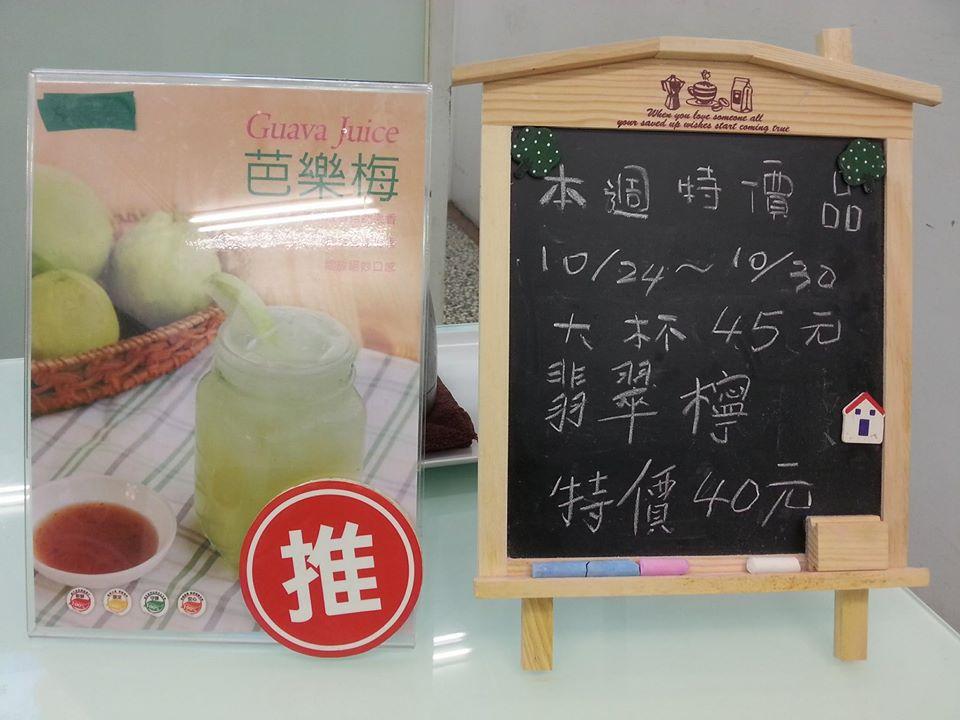 Guava Juice
芭樂梅
推
When you love someone all
your saved up wishes start coming true
本週特價品
10/24～10/30
大杯45元
翡翠檸
特價40元